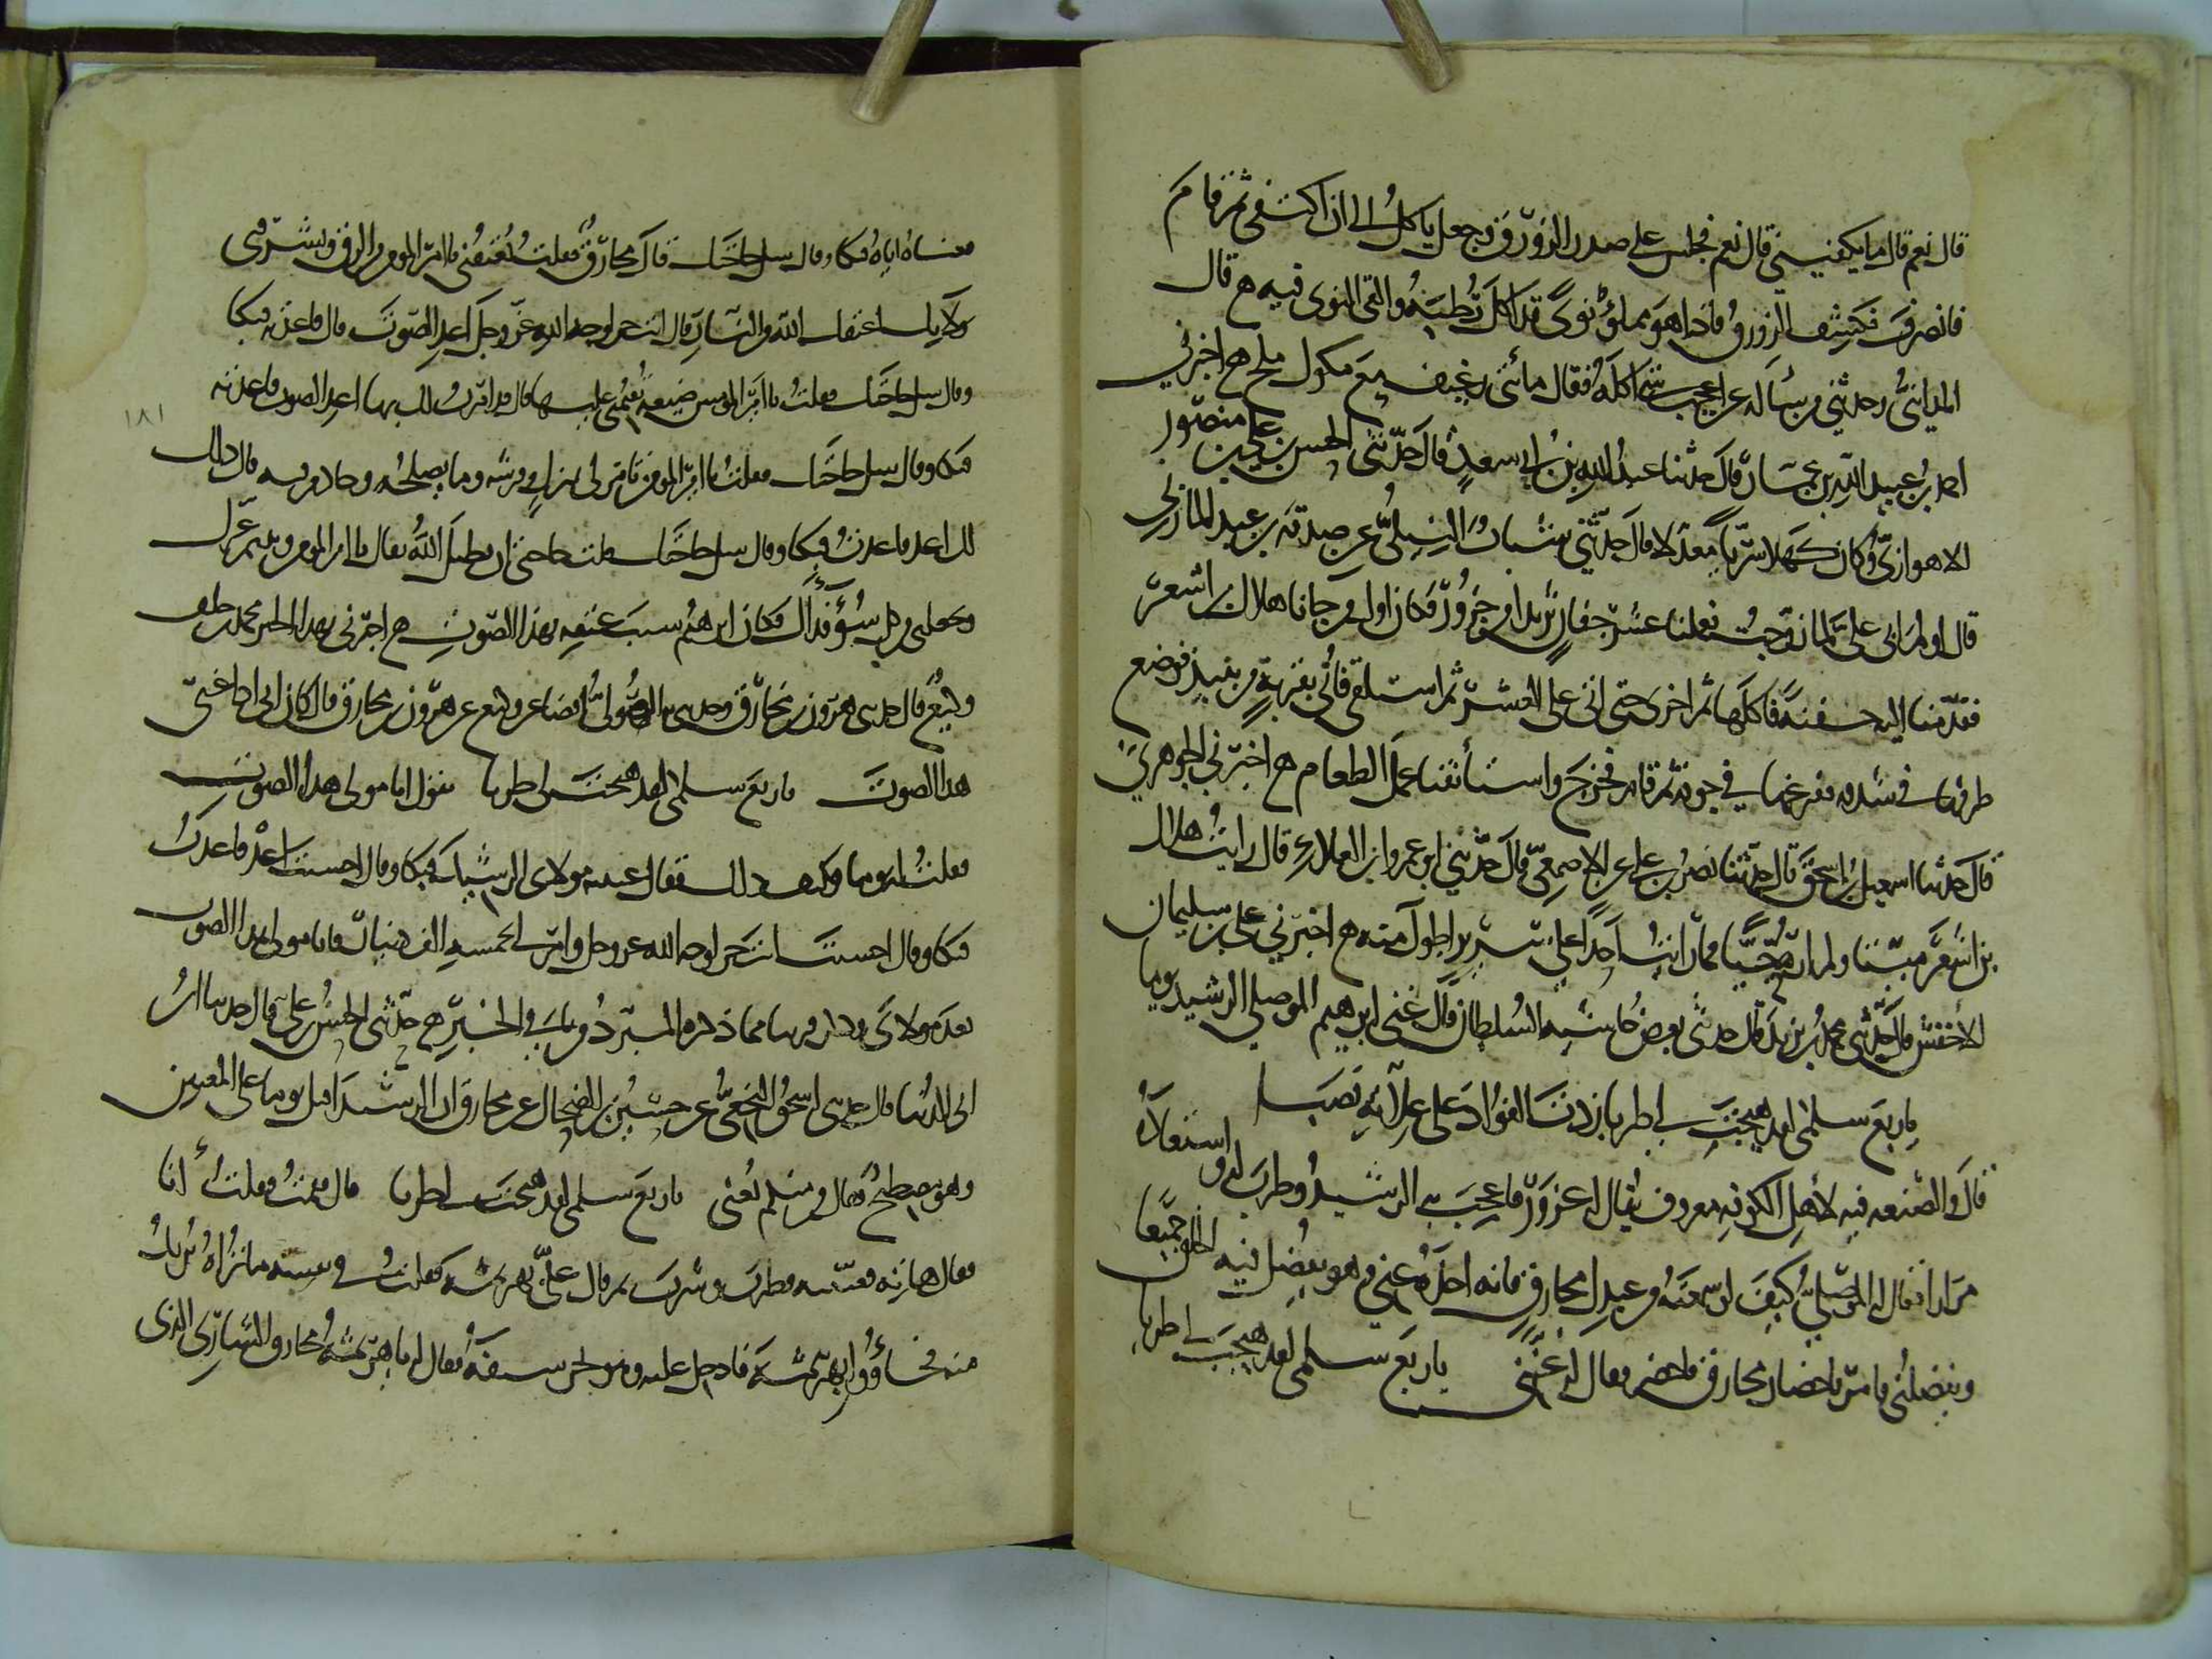 قال نعم قال ما يكفيني قال نعم فجلس على صدر الزورق وجعل ياكل الى ان اكتفى ثم قام
فانصرف فكشف الزورق فاذا هو مملؤ نوى قد اكل رطبه والقى النوى فيه ه قال
المدائني وحدثني من سأله عن اعجب شيء اكله فقال مائتي رغيف مع مكوك ملح ه اخبرني
احمد بن عبيد الله بن عمار قال حدثنا عبد الله بن ابي سعد قال حدثني الحسن بن علي بن منصور
الاهوازي وكان كهلا سريا معدلا قال حدثني شبان النيلي عن صدقة بن عبيد المازني
قال اولم ابي علي لما تزوجت فعلنا عشر جفان ثريدا من جزور فكان اول من جانا هلال بن اشعر
فقدمنا اليه جفنة فاكلها ثم اخرى حتى اتى على العشر ثم استسقى فأتي بقربة من نبيذ فوضع
طرفها في شدقه ففرغها في جوفه ثم قام فخرج واستأنفنا عمل الطعام ه اخبرني الجوهري
قال حدثنا اسمعيل بن اسحق قال حدثنا نصر بن علي عن الاصمعي قال حدثني ابو عمرو بن العلاء قال رايت هلال
بن اشعر ميتا ولم اره حيا فما رايت احدا على سرير اطول منه ه اخبرني علي بن سليمان
الاخفش قال حدثني محمد بن يزيد قال حدثني بعض حاشية السلطان قال غنى ابرهيم الموصلي الرشيد يوما
يا ربع سلمى لقد هيجت لي طربا زدت الفؤاد على علاته نصبا
قال والصنعة فيه لاهل الكوفه معروف يقال له عزور فاعجب به الرشيد وطرب له واستعاده
مرارا فقال له الموصلي كيف لو سمعته من عبدك مخارق فانه اخذه عني وهو يفضل فيه الخلق جميعا
ويفضلني فامر باحضار مخارق فاحضر فقال له غنني يا ربع سلمى لقد هيجت لي طربا
فغناه اياه فبكا وقال سل حاجتك قال مخارق فقلت تعتقني يا امير المومنين من الرق وتشرفني
بولايك اعتقك الله من النار قال انت حر لوجه الله عز وجل اعد الصوت قال فاعدته فبكا
وقال سل حاجتك فقلت يا امير المومنين ضيعة تقيمني غلتها قال قد امرت لك بها اعد الصوت فاعدته
١٨١
فبكا وقال سل حاجتك فقلت يا امير المومنين تامر لي بمنزل وفرشه وما يصلحه وخادم فيه قال ذلك
لك اعد فاعدت فبكا وقال سل حاجتك قلت حاجتي ان يطيل الله بقاك يا امير المومنين ويديم عزك
ويجعلني من كل سوء فداك فكان ابرهيم سبب عتقه بهذا الصوت ه اخبرني بهذا الخبر محمد بن خلف
وكيع قال حدثني هرون بن مخارق وحدثني به الصولي ايضا عن وكيع عن هرون بن مخارق قال كان ابي اذا غنى
هذا الصوت يا ربع سلمى لقد هيجت لي طربا يقول انا مولى هذا الصوت
فقلت له يوما وكيف ذلك فقال غنيته مولاي الرشيد فبكا وقال احسنت اعد فاعدت
فبكا وقال احسنت انت حر لوجه الله عز وجل وامر لي بخمسة الف دينار فانا مولى هذا الصوت
بعد مولاي وذكر قريبا مما ذكره المبرد من باقي الخبر ه حدثني الحسن بن علي قال حدثنا ابن
ابي الدنيا قال حدثني اسحق النخعي عن حسين بن الضحاك عن مخارق ان الرشيد اقبل يوما على المغنين
وهو مصطبح فقال من منكم يغني يا ربع سلمى لقد هيجت لي طربا قال فقمت وقلت انا
فقال هاته فغنيته فطرب وشرب ثم قال علي بهرثمة فقلت في نفسي ما تراه يريد
منه فجاؤوا بهرثمة فادخل عليه وهو يجر سيفه فقال له يا هرثمة مخارق الشاري الذي